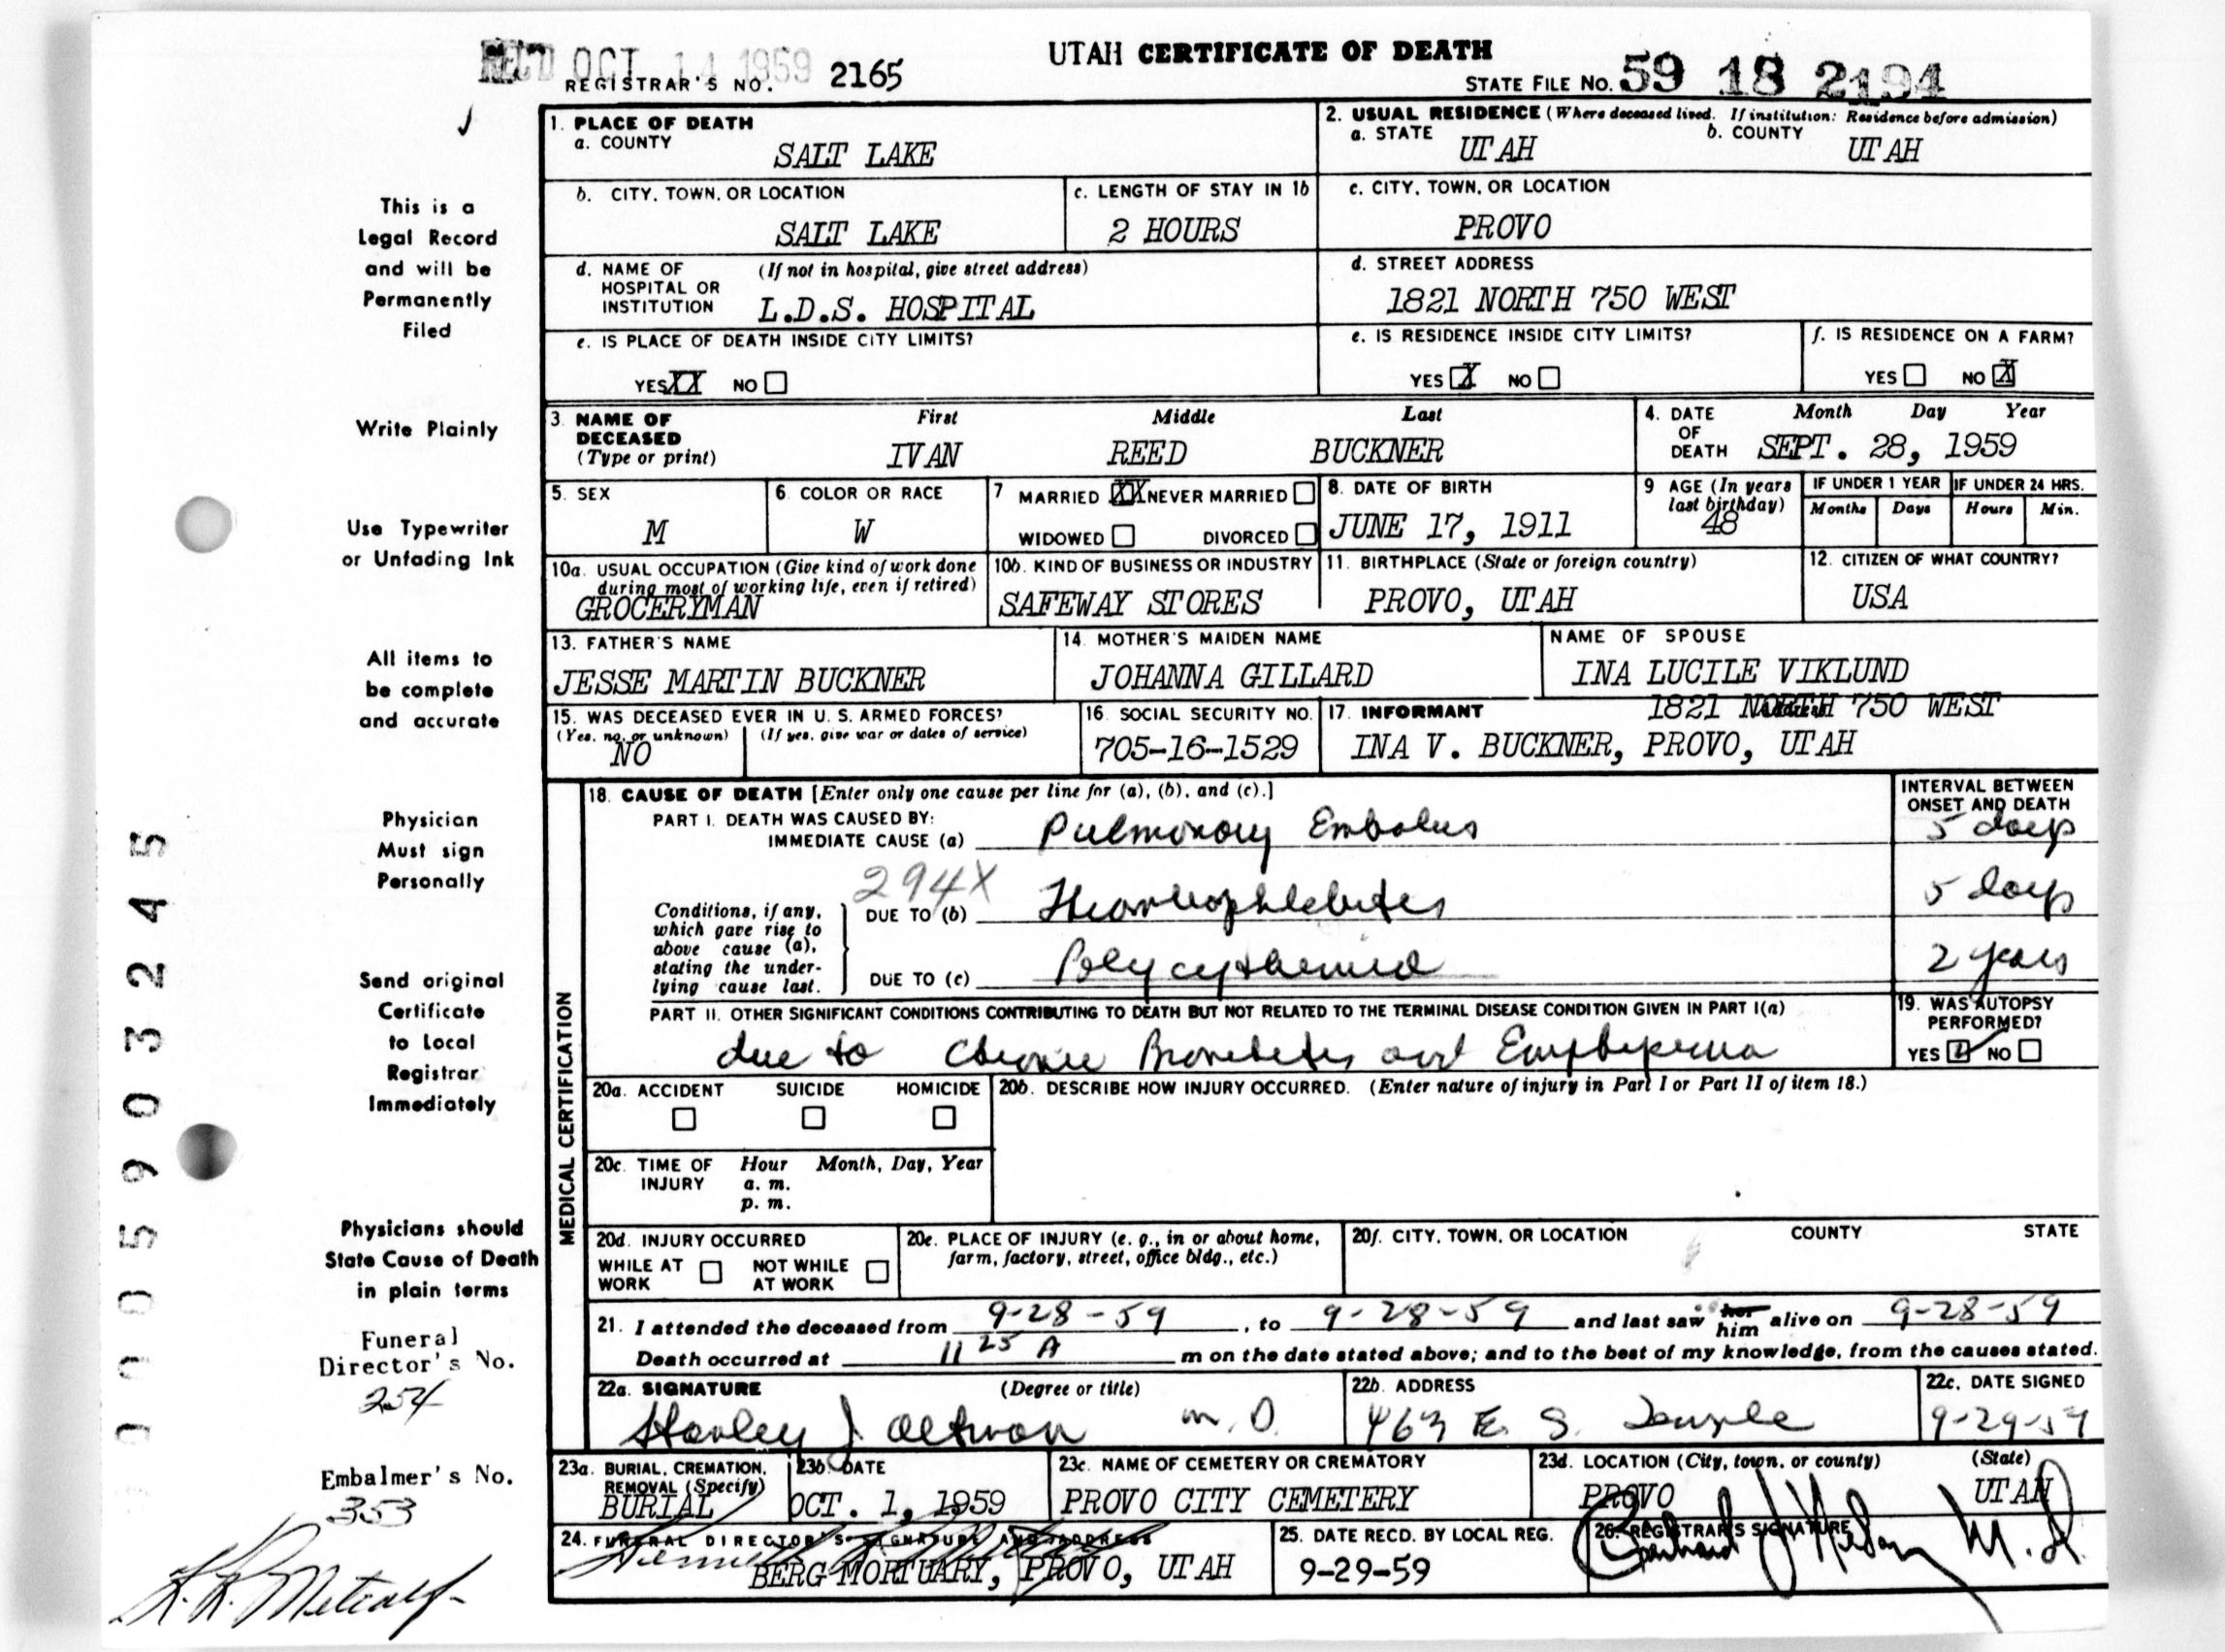 REC'D OCT 14 1959
UTAH CERTIFICATE OF DEATH
REGISTRAR'S NO. 2165
STATE FILE NO. 59 18 2194
This is a
Legal Record
and will be
Permanently
Filed
Write Plainly
Use Typewriter
or Unfading Ink
All items to
be complete
and accurate
Physician
Must sign
Personally
Send original
Certificate
to Local
Registrar
Immediately
Physicians should
State Cause of Death
in plain terms
Funeral
Director's No.
254
Embalmer's No.
353
K. R. Metcalf
1. PLACE OF DEATH
a. COUNTY
SALT LAKE
2. USUAL RESIDENCE (Where deceased lived. If institution: Residence before admission)
a. STATE UTAH b. COUNTY UTAH
b. CITY, TOWN, OR LOCATION
SALT LAKE
c. LENGTH OF STAY IN 1b
2 HOURS
c. CITY, TOWN, OR LOCATION
PROVO
d. NAME OF HOSPITAL OR INSTITUTION (If not in hospital, give street address)
L.D.S. HOSPITAL
d. STREET ADDRESS
1821 NORTH 750 WEST
e. IS PLACE OF DEATH INSIDE CITY LIMITS?
YES XX NO
e. IS RESIDENCE INSIDE CITY LIMITS?
YES X NO
f. IS RESIDENCE ON A FARM?
YES NO X
3. NAME OF DECEASED (Type or print)
First Middle Last
IVAN REED BUCKNER
4. DATE OF DEATH Month Day Year
SEPT. 28, 1959
5. SEX
M
6. COLOR OR RACE
W
7 MARRIED XX NEVER MARRIED
WIDOWED DIVORCED
8. DATE OF BIRTH
JUNE 17, 1911
9 AGE (In years last birthday)
48
IF UNDER 1 YEAR IF UNDER 24 HRS.
Months Days Hours Min.
10a. USUAL OCCUPATION (Give kind of work done during most of working life, even if retired)
GROCERYMAN
10b. KIND OF BUSINESS OR INDUSTRY
SAFEWAY STORES
11. BIRTHPLACE (State or foreign country)
PROVO, UTAH
12. CITIZEN OF WHAT COUNTRY?
USA
13. FATHER'S NAME
JESSE MARTIN BUCKNER
14. MOTHER'S MAIDEN NAME
JOHANNA GILLARD
NAME OF SPOUSE
INA LUCILE VIKLUND
15. WAS DECEASED EVER IN U. S. ARMED FORCES?
(Yes, no, or unknown) (If yes, give war or dates of service)
NO
16. SOCIAL SECURITY NO.
705-16-1529
17. INFORMANT Address
1821 NORTH 750 WEST
INA V. BUCKNER, PROVO, UTAH
MEDICAL CERTIFICATION
18. CAUSE OF DEATH [Enter only one cause per line for (a), (b), and (c).]
INTERVAL BETWEEN ONSET AND DEATH
PART I. DEATH WAS CAUSED BY:
IMMEDIATE CAUSE (a) Pulmonary Embolus 5 days
294X
Conditions, if any, which gave rise to above cause (a), stating the underlying cause last.
DUE TO (b) Thrombophlebitis 5 days
DUE TO (c) Polycythemia 2 years
PART II. OTHER SIGNIFICANT CONDITIONS CONTRIBUTING TO DEATH BUT NOT RELATED TO THE TERMINAL DISEASE CONDITION GIVEN IN PART I(a)
due to Chronic Bronchitis and Emphysema
19. WAS AUTOPSY PERFORMED?
YES NO
20a. ACCIDENT SUICIDE HOMICIDE
20b. DESCRIBE HOW INJURY OCCURRED. (Enter nature of injury in Part I or Part II of item 18.)
20c. TIME OF INJURY Hour Month, Day, Year
a. m.
p. m.
20d. INJURY OCCURRED
WHILE AT WORK NOT WHILE AT WORK
20e. PLACE OF INJURY (e. g., in or about home, farm, factory, street, office bldg., etc.)
20f. CITY, TOWN, OR LOCATION COUNTY STATE
21. I attended the deceased from 9-28-59, to 9-28-59 and last saw her him alive on 9-28-59
Death occurred at 11 25 A m on the date stated above; and to the best of my knowledge, from the causes stated.
22a. SIGNATURE (Degree or title)
Stanley J Altman M.D.
22b. ADDRESS
463 E. S. Temple
22c. DATE SIGNED
9-29-59
23a. BURIAL, CREMATION, REMOVAL (Specify)
BURIAL
23b. DATE
OCT. 1, 1959
23c. NAME OF CEMETERY OR CREMATORY
PROVO CITY CEMETERY
23d. LOCATION (City, town, or county) (State)
PROVO UTAH
24. FUNERAL DIRECTOR'S SIGNATURE AND ADDRESS
BERG MORTUARY, PROVO, UTAH
25. DATE RECD. BY LOCAL REG.
9-29-59
26. REGISTRAR'S SIGNATURE
M.D.